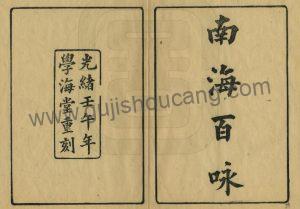 南海百咏
光緒壬午年
學海堂重刻
www.gujishoucang.com